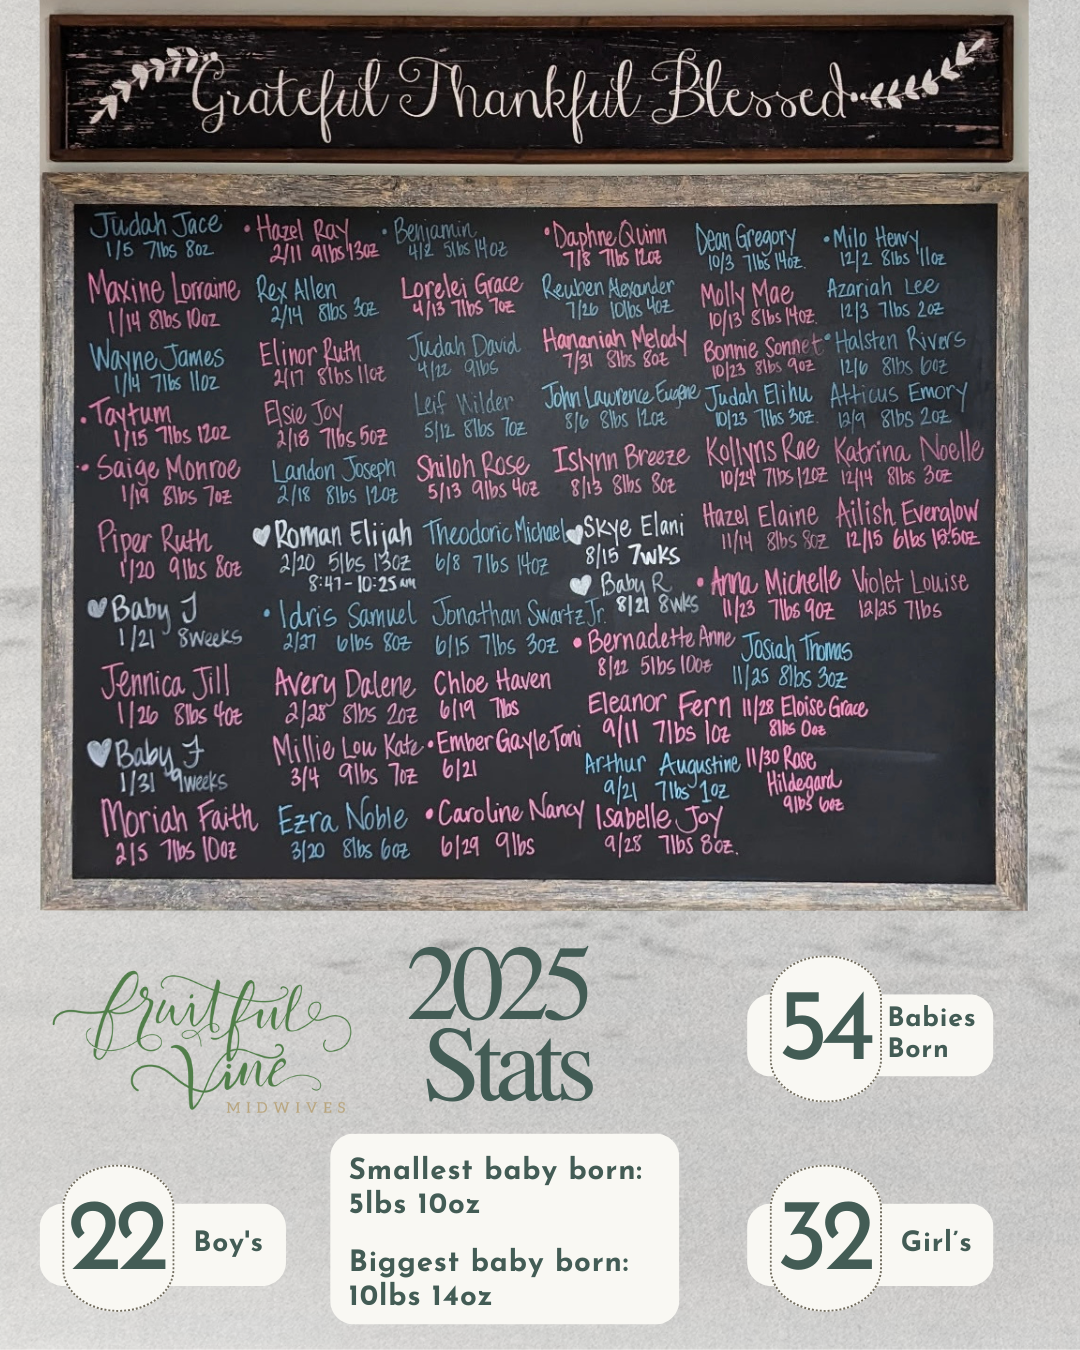 Grateful Thankful Blessed
Judah Jace
1/5 7lbs 8oz
Maxine Lorraine
1/14 8lbs 10oz
Wayne James
1/14 7lbs 11oz
• Taytum
1/15 7lbs 12oz
• Saige Monroe
1/19 8lbs 7oz
Piper Ruth
1/20 9lbs 8oz
Baby J
1/21 8weeks
Jennica Jill
1/26 8lbs 4oz
Baby F
1/31 9weeks
Moriah Faith
2/5 7lbs 10oz
• Hazel Ray
2/11 9lbs 13oz
Rex Allen
2/14 8lbs 3oz
Elinor Ruth
2/17 8lbs 11oz
Elsie Joy
2/18 7lbs 5oz
Landon Joseph
2/18 8lbs 12oz
Roman Elijah
2/20 5lbs 13oz
8:47-10:25am
• Idris Samuel
2/27 6lbs 8oz
Avery Dalene
2/28 8lbs 2oz
Millie Lou Kate
3/4 9lbs 7oz
Ezra Noble
3/20 8lbs 6oz
• Benjamin
4/2 5lbs 14oz
Lorelei Grace
4/13 7lbs 7oz
Judah David
4/22 9lbs
Leif Wilder
5/12 8lbs 7oz
Shiloh Rose
5/13 9lbs 4oz
Theodoric Michael
6/8 7lbs 14oz
Jonathan Swartz Jr.
6/15 7lbs 3oz
Chloe Haven
6/19 7lbs
• Ember Gayle Toni
6/21
• Caroline Nancy
6/29 9lbs
• Daphne Quinn
7/8 7lbs 12oz
Reuben Alexander
7/26 10lbs 4oz
Hananiah Melody
7/31 8lbs 8oz
John Lawrence Eugene
8/6 8lbs 12oz
Islynn Breeze
8/13 8lbs 8oz
Skye Elani
8/15 7wks
Baby R
8/21 8wks
• Bernadette Anne
8/22 5lbs 10oz
Eleanor Fern
9/11 7lbs 1oz
Arthur Augustine
9/21 7lbs 1oz
Isabelle Joy
9/28 7lbs 8oz.
Dean Gregory
10/3 7lbs 14oz.
Molly Mae
10/13 8lbs 14oz.
Bonnie Sonnet
10/23 8lbs 9oz
Judah Elihu
10/23 7lbs 3oz.
Kollyns Rae
10/24 7lbs 12oz
Hazel Elaine
11/14 8lbs 8oz
• Anna Michelle
11/23 7lbs 9oz
Josiah Thomas
11/25 8lbs 3oz
11/28 Eloise Grace
8lbs 0oz
11/30 Rose
Hildegard
9lbs 6oz
• Milo Henry
12/2 8lbs 11oz
Azariah Lee
12/3 7lbs 2oz
• Halsten Rivers
12/6 8lbs 6oz
Atticus Emory
12/9 8lbs 2oz
Katrina Noelle
12/14 8lbs 3oz
Ailish Everglow
12/15 6lbs 15.5oz
Violet Louise
12/25 7lbs
fruitful
Vine
MIDWIVES
2025
Stats
54 Babies
Born
22 Boy's
Smallest baby born:
5lbs 10oz
Biggest baby born:
10lbs 14oz
32 Girl's